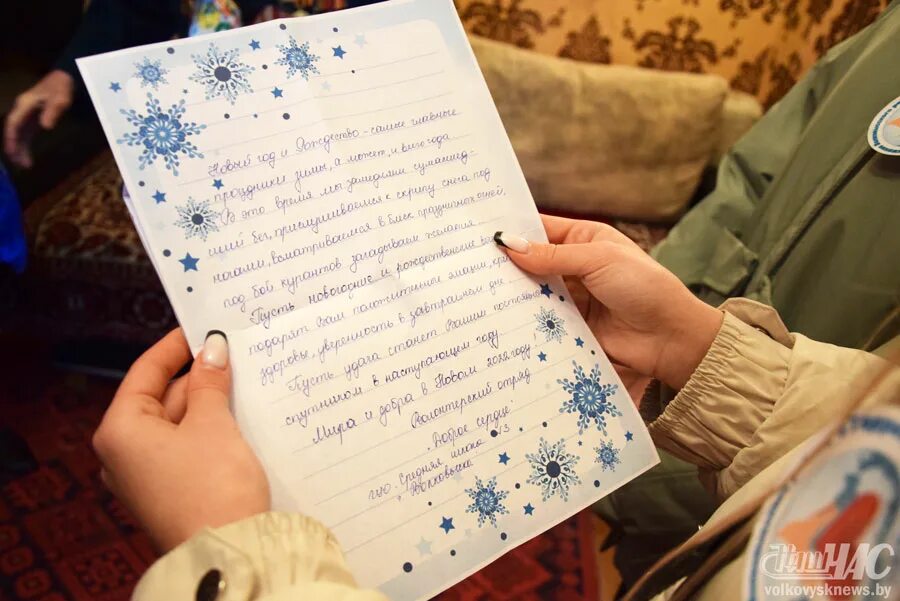 Новый год и Рождество – самые главные
праздники зимы, а может, и всего года.
В это время мы замедляем сумасшед-
ший бег, прислушиваемся к скрипу снега под
ногами, всматриваемся в блеск праздничных огней,
под бой курантов загадываем желания.
Пусть новогодние и рождественские
подарят Вам положительные эмоции,
здоровье, уверенность в завтрашнем дне.
Пусть удача станет Вашим постоянным
спутником в наступающем году.
Мира и добра в Новом 2022 году!
Волонтерский отряд
"Доброе сердце"
ГУО "Средняя школа №3
г. Волковыска"
Наш ЧАС
volkovysknews.by